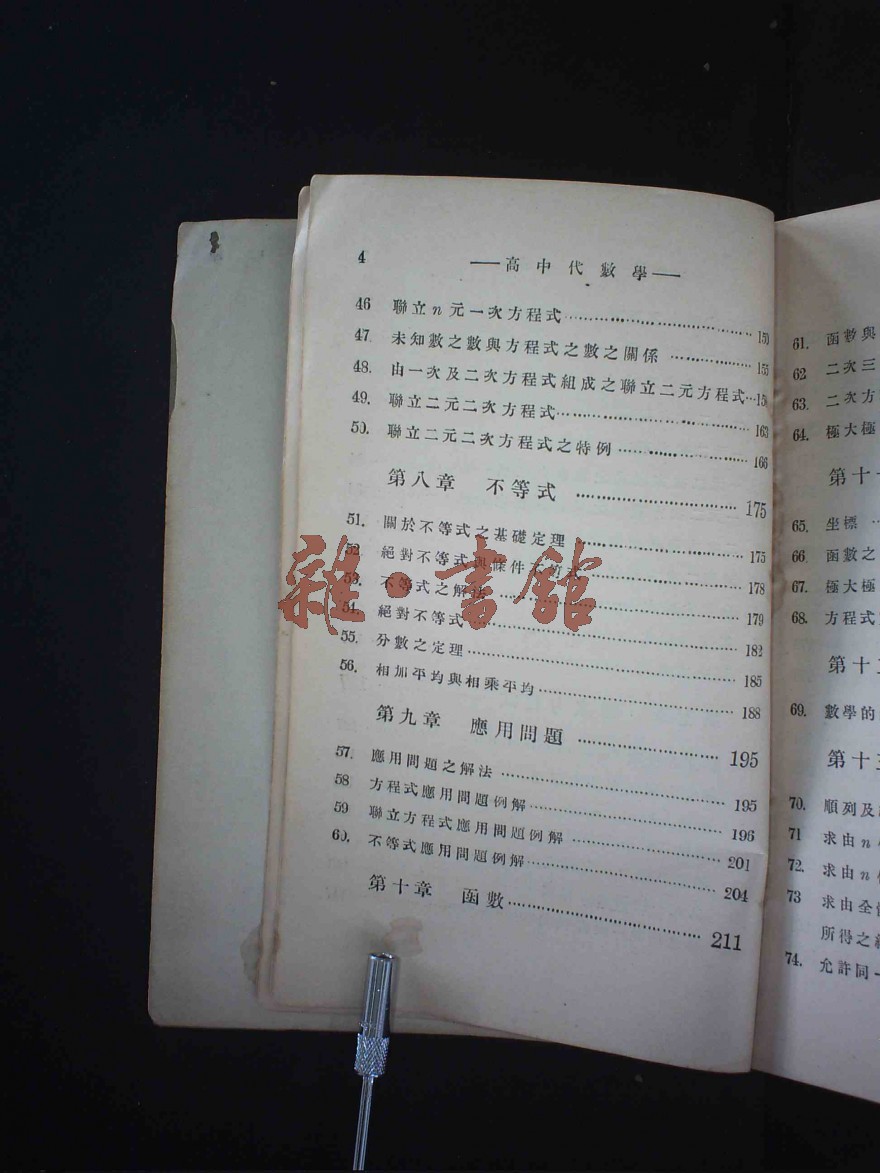 4 ——高中代數學——
46 聯立n元一次方程式 150
47. 未知數之數與方程式之數之關係 155
48. 由一次及二次方程式組成之聯立二元方程式
49. 聯立二元二次方程式 163
50. 聯立二元二次方程式之特例 166
第八章 不等式 175
51. 關於不等式之基礎定理 175
52. 絕對不等式與條件不等式 178
53. 不等式之解法 179
54. 絕對不等式 182
55. 分數之定理 185
56. 相加平均與相乘平均 188
第九章 應用問題 195
57. 應用問題之解法 195
58 方程式應用問題例解 196
59 聯立方程式應用問題例解 201
60. 不等式應用問題例解 204
第十章 函數 211
雜·書館
61. 函數與
62 二次三
63. 二次方
64. 極大極
第十
65. 坐標
66 函數之
67. 極大極
68. 方程式
第十
69. 數學的
第十
70. 順列及
71 求由n
72. 求由n
73 求由全
所得之
74. 允許同一